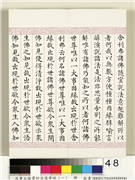 舍利弗諸佛隨宜說法意趣難解所以
者何我以無數方便種種因緣譬喻言
辭演說諸法是法非思量分別之所能
解唯有諸佛乃能知之所以者何諸佛
世尊唯以一大事因緣故出現於世舍
利弗云何名諸佛世尊唯以一大事因
緣故出現於世諸佛世尊欲令眾生開
佛知見使得清淨故出現於世欲示眾
生佛之知見故出現於世欲令眾生悟
佛知見故出現於世欲令眾生入佛知
48